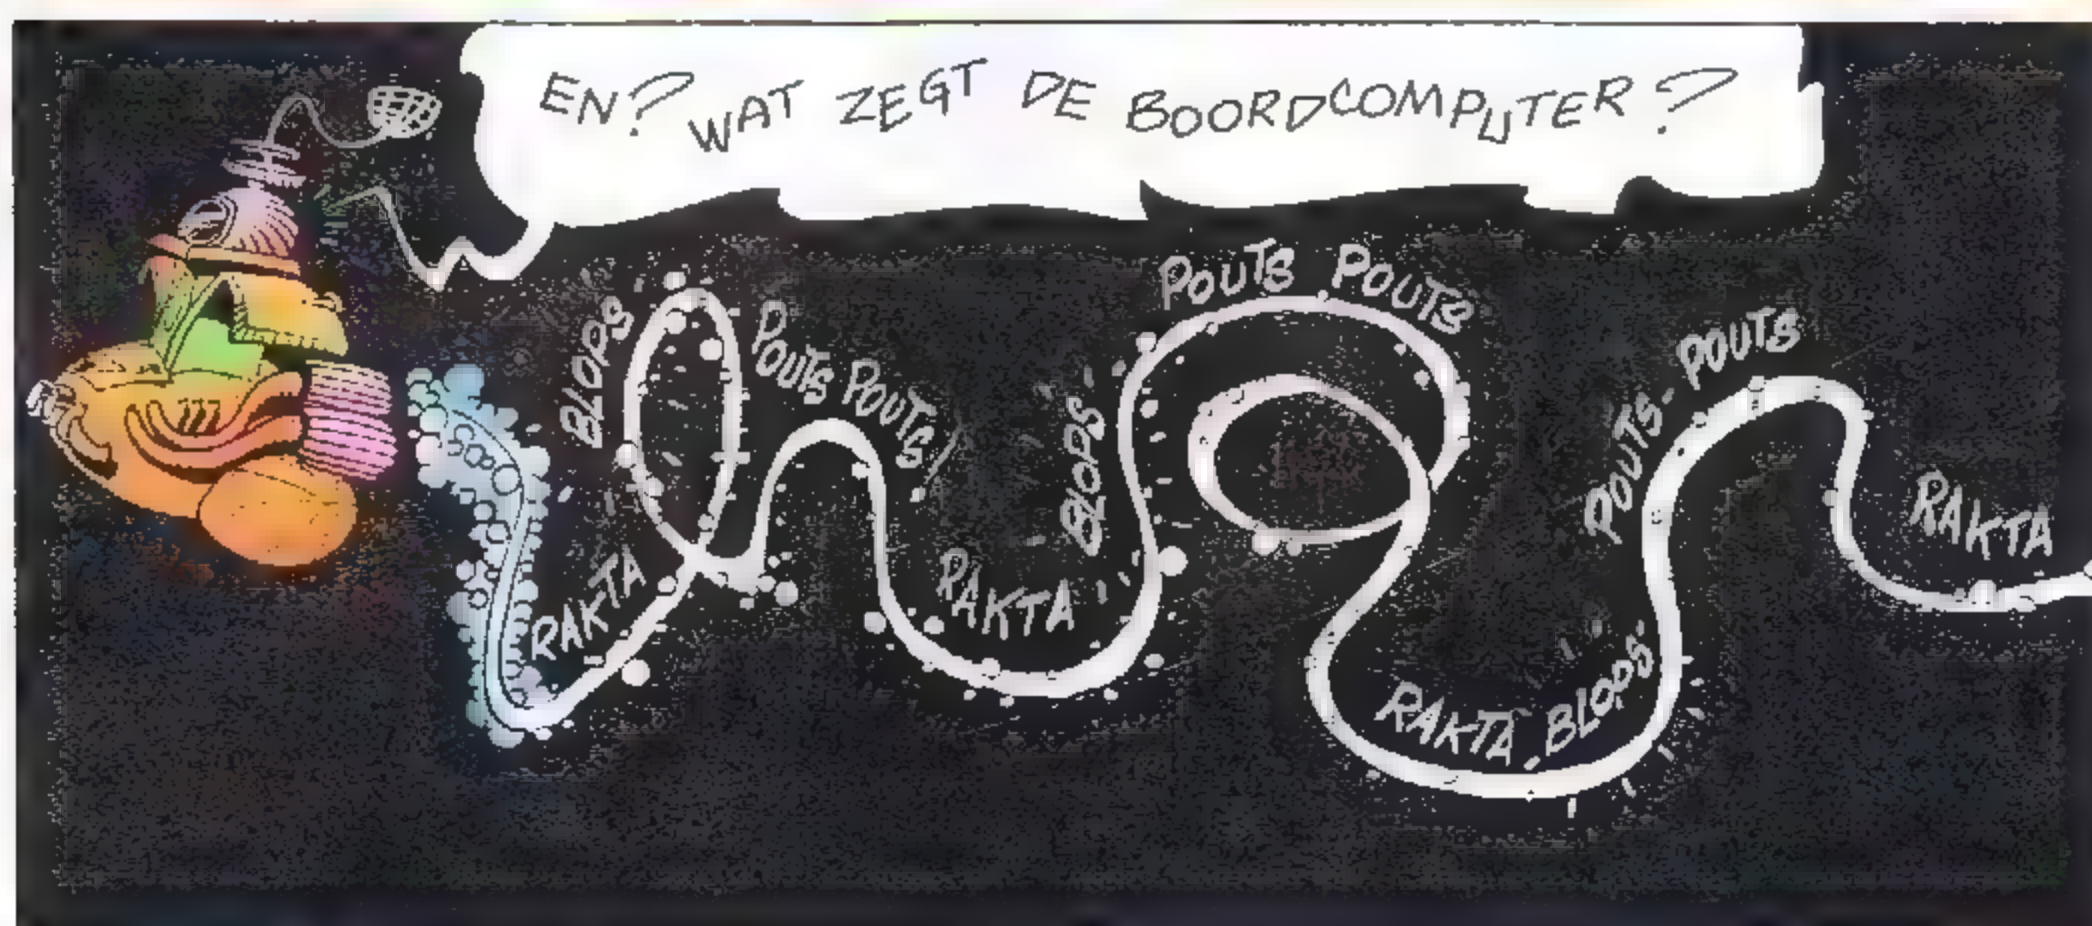 EN? WAT ZEGT DE BOORDCOMPUTER?
SCOP
RAKTA
BLOPS
POUTS POUTS!
RAKTA
BLOPS
POUTS POUTS
RAKTA BLOPS-
POUTS- POUTS
RAKTA